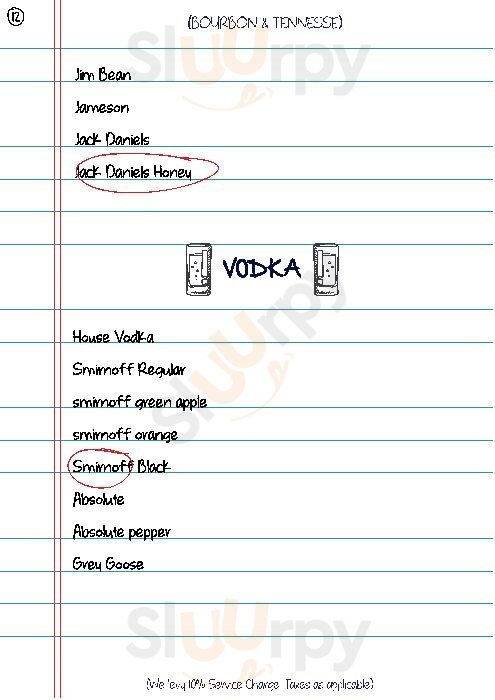 12
(BOURBON & TENNESSE)
Sluurpy
Jim Bean
Jameson
Jack Daniels
Jack Daniels Honey
VODKA
Sluurpy
House Vodka
Smirnoff Regular
smirnoff green apple
smirnoff orange
Smirnoff Black
Absolute
Absolute pepper
Grey Goose
Sluurpy
(We levy 10% Service Charge. Taxes as applicable)